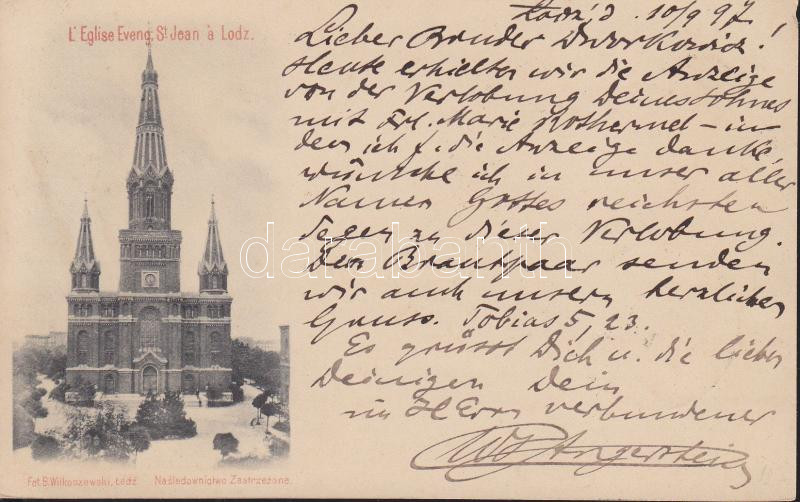 L'Eglise Evang. St Jean à Lodz.
Lodz, d. 10/9 97.
Lieber Bruder Dworkowicz!
Heute erhielten wir die Anzeige
von der Verlobung Deines Sohnes
mit Frl. Marie Rothermel – in-
dem ich f. die Anzeige danke,
wünsche ich in unser aller
Namen Gottes reichsten
Segen zu dieser Verlobung.
Dem Brautpaar senden
wir auch unsern herzlichen
Gruss. Tobias 5, 23.
Es grüsst Dich u. die lieben
Deinigen Dein
im HErrn verbundener
W P Angerstein
Fot. B. Wilkoszewski, Łódź. Naśladownictwo Zastrzeżone.
darabanth